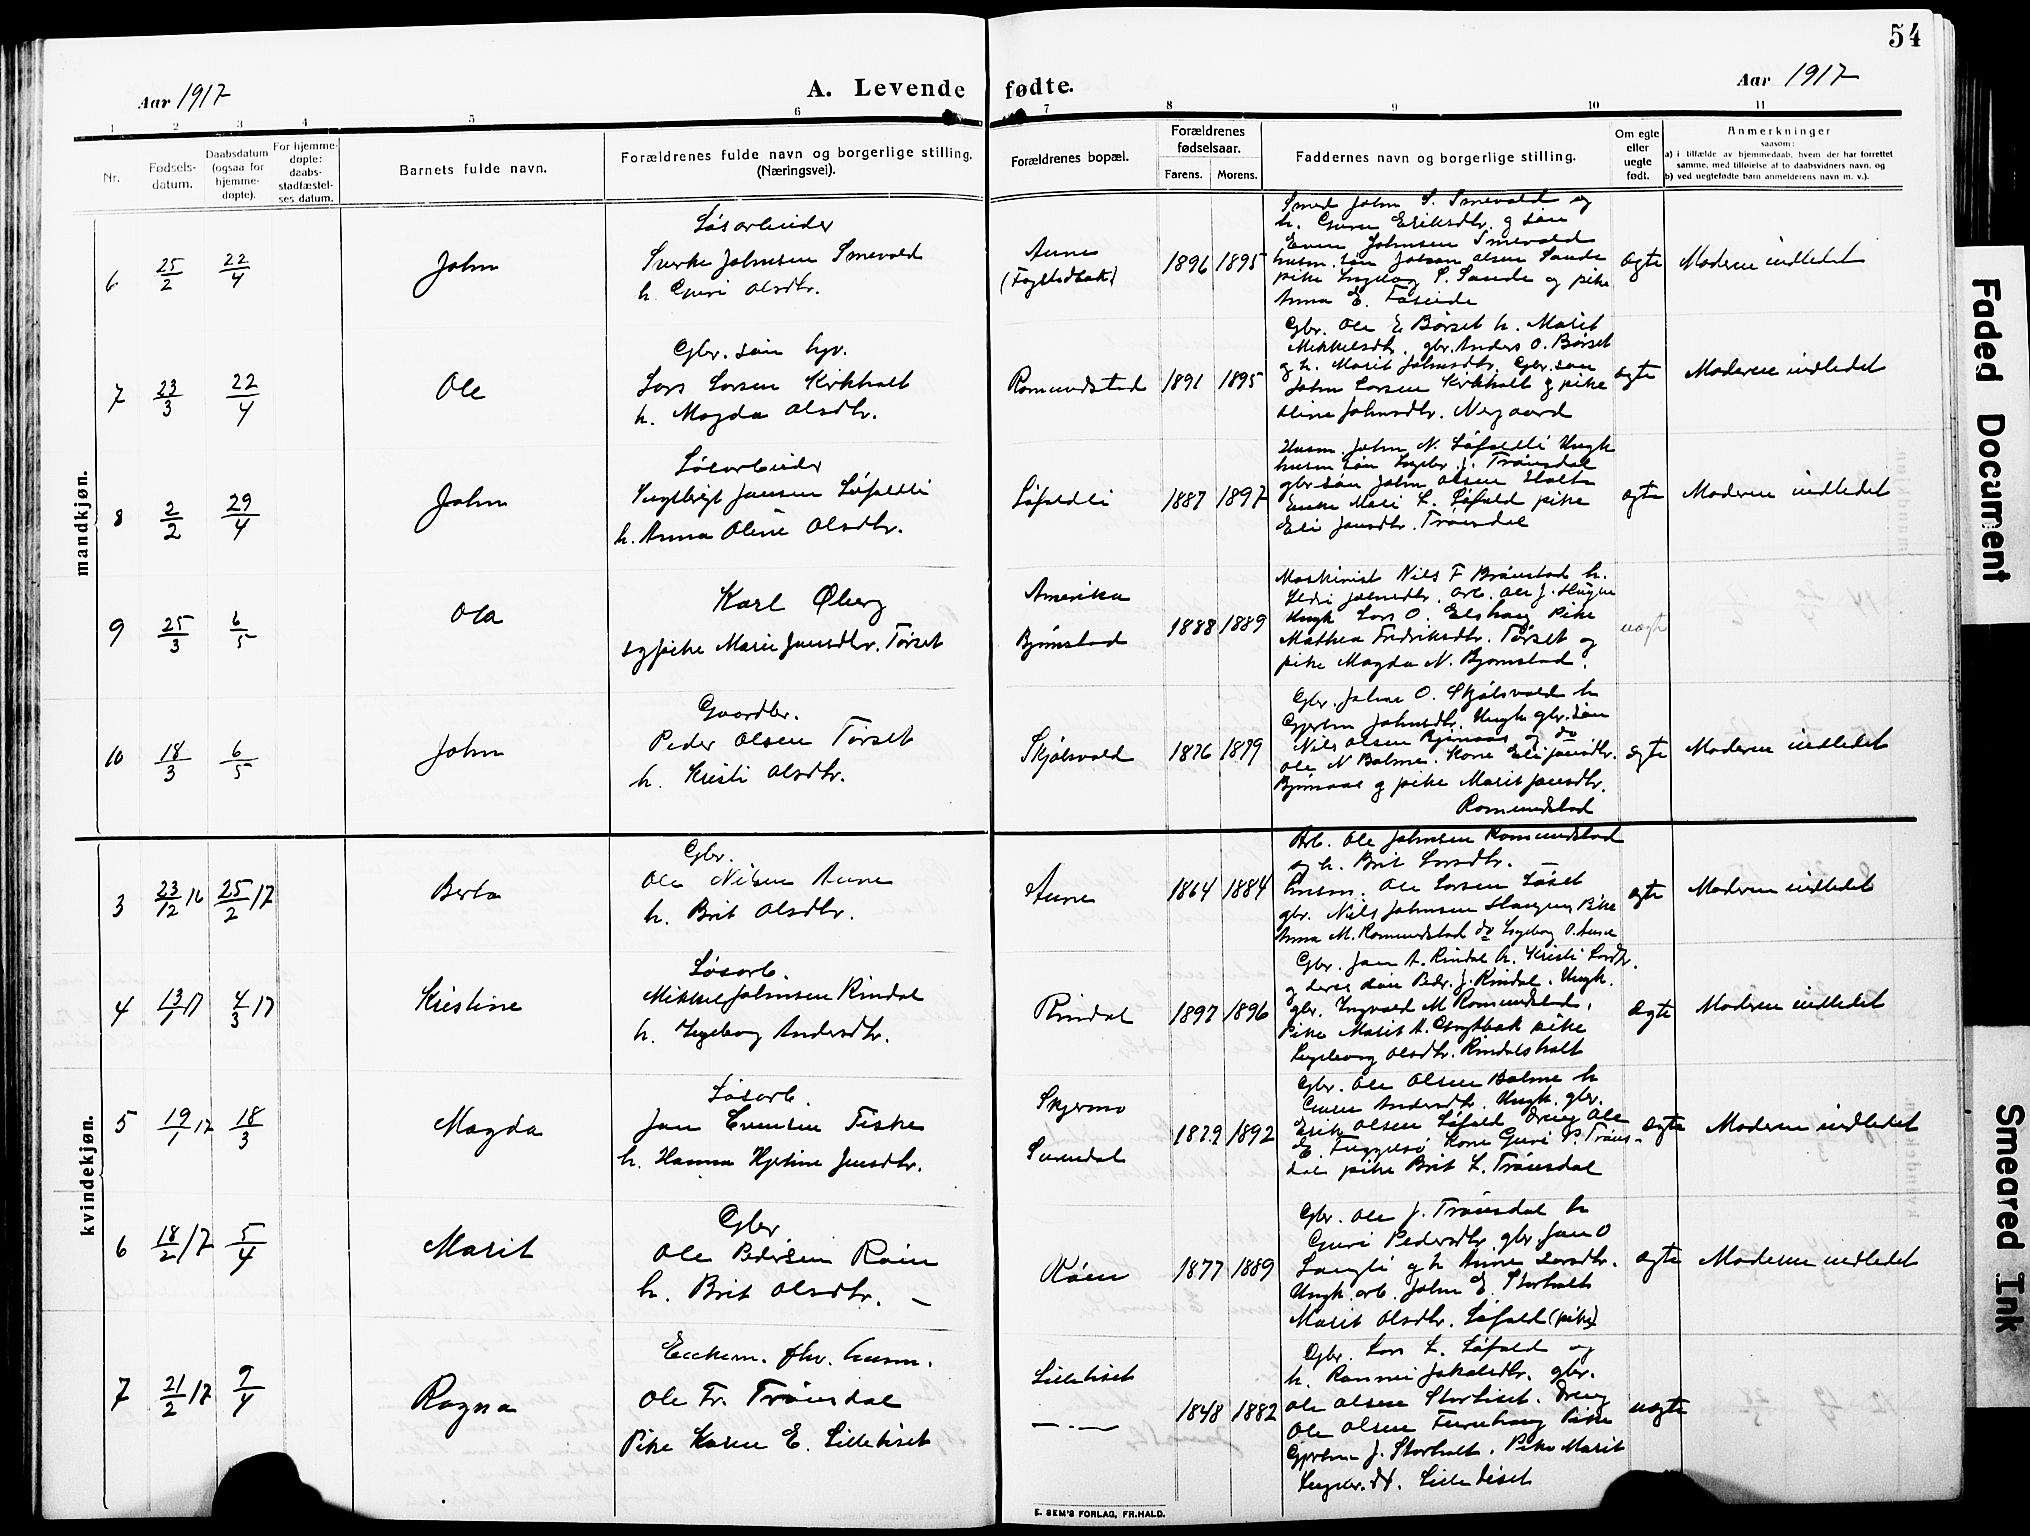 54
Aar 1917
A. Levende fødte.
Aar 1917
1 2 3 4 5 6 7 8 9 10 11
Nr.
Fødsels-
datum.
Daabsdatum
(ogsaa for
hjemme-
døpte).
For hjemme-
døpte:
daabs-
stadfæstel-
ses datum.
Barnets fulde navn.
Forældrenes fulde navn og borgerlige stilling.
(Næringsvei).
Forældrenes bopæl.
Forældrenes
fødselsaar.
Farens. Morens.
Faddernes navn og borgerlige stilling.
Om egte
eller
uegte
født.
Anmerkninger
saasom:
a) i tilfælde av hjemmedaab, hvem der har forrettet
samme, med tilføielse af to daabsvidners navn, og
b) ved uegtefødte barn anmelderens navn m. v.).
mandkjøn.
6 25/2 22/4 John
Løsarbeider
Sverke Johnsen Smevold
h. Guri Olsdtr.
Aune
1896 1895
Smed John S. Smevold og
h. Guru Eriksdtr. g søn
Even Johnsen Smevold
husm. søn Olsen Sande
pike Ingebog S. Sande og pike
Anna E.
ægte
Moderen indledet
7 23/3 22/4 Ole
Gbr. søn hgv.
Lars Larsen Kirkholt
h. Magda Olsdtr.
Romundstad
1891 1895
Gbr. Ole E Børset h. Marit
Mikkelsdtr. gbr. Anders O. Børset
og h. Marit Johnsdtr. Gbr. søn
John Larsen Kirkholt g pike
Oline Johnsdtr. Nergaard
ægte
Moderen indledet
8 2/2 29/4 John
Løsarbeider
Ingebrigt Jansen Løfaldli
h. Anna Oline Olsdtr.
Løfaldli
1887 1897
Husm. John N. Løfaldli Ungk
husm søn Ingebr. J. Trønsdal
gbr søn John Olsen Holte
Enke Mari L. Løfald pike
Eli Jansdtr. Trønsdal
ægte
Moderen indledet
9 25/3 6/5 Ola
Karl Øberg
og pike Marie Jansdtr. Tørset
Amerika
Bjørnstad
1888 1889
Maskinist Nils F Brønstad h.
Ildri Johnsdtr. Arb. Ole J.
Ungk Lars O. Elshaug Pike
Mathea Fredriksdtr. Tørset og
pike Magda N. Bjørnstad.
uægte
10 18/3 6/5 John
Gaardbr.
Peder Olsen Tørset
h. Kristi Olsdtr.
Skjølsvold
1876 1879
Gbr. Johne O. Skjølsvold h
Gjertru Johnsdtr. Ungk. gbr. søn
Nils Olsen Bjørnaas og do
Ole N Bolme. Kone Eli Jansdtr.
Bjørnaas g pike Marit Jansdtr.
Romundstad
ægte
Moderen indledet
kvindekjøn.
3 23/12 16 25/2 17 Berta
Gbr.
Ole Nilsen Aune
h. Brit Olsdtr.
Aune
1864 1884
Arb. Ole Johnsen Romundstad
og h. Brit Larsdtr. —
husm. Ole Larsen Løset
gbr. Nils Johnsen Haugen, Pike
Anna M. Romundstad do Ingeborg O. Aune
ægte
Moderen indledet
4 13/1 17 4/3 17 Kristine
Løsarb.
Mikkel Johnsen Rindal
h. Ingeborg Andersdtr.
Rindal
1897 1896
Gbr. Jan A. Rindal h. Kristi Larsdtr.
g deres søn Peder J. Rindal. Ungk.
gbr. Ingvald M Romundstad,
Pike Marit A. pike
Ingeborg Olsdtr. Rindalsholt
ægte
Moderen indledet
5 19/1 17 18/3 Magda
Løsarb.
Jan Evensen Fiske
h. Hanna Hjeline Jensdtr.
Skjermo
Surendal
1879 1892
Gbr. Ole Olsen Bolme h
Guru Andersdtr. Ungk. gbr.
Erik Olsen Løfald Dreng Ole
E. Kone Guri P. Trøns-
dal pike Brit L. Trønsdal
ægte
Moderen indledet
6 18/2 17 5/4 Marit
Gbr
Ole Pedersen Røen
h. Brit Olsdtr. —
Røen
1877 1889
Gbr. Ole J. Trønsdal h
Guri Pedersdtr. gbr Jan O
Langli g h Anne Larsdtr.
Ungk. arb. John E. Storholt
Marit Olsdtr. Løfald (pike)
ægte
Moderen indledet
7 21/2 17 9/4 Ragna
Enkem. fhv. husm.
Ole Fr. Trønsdal
Pike Karen E. Lilletiset
Lilletiset
— . —
1848 1882
Gbr. Lars L. Løfald og
h. Rannei Jakobsdtr. gbr.
Ole Olsen Stortiset. Dreng
Ole Olsen Furuhaug Pike
Gjertru J. Storholt. Pike Marit
Ingebr.dt. Lilletiset
uægte
E. SEM'S FORLAG, FR.HALD.
Faded Document
Smeared Ink